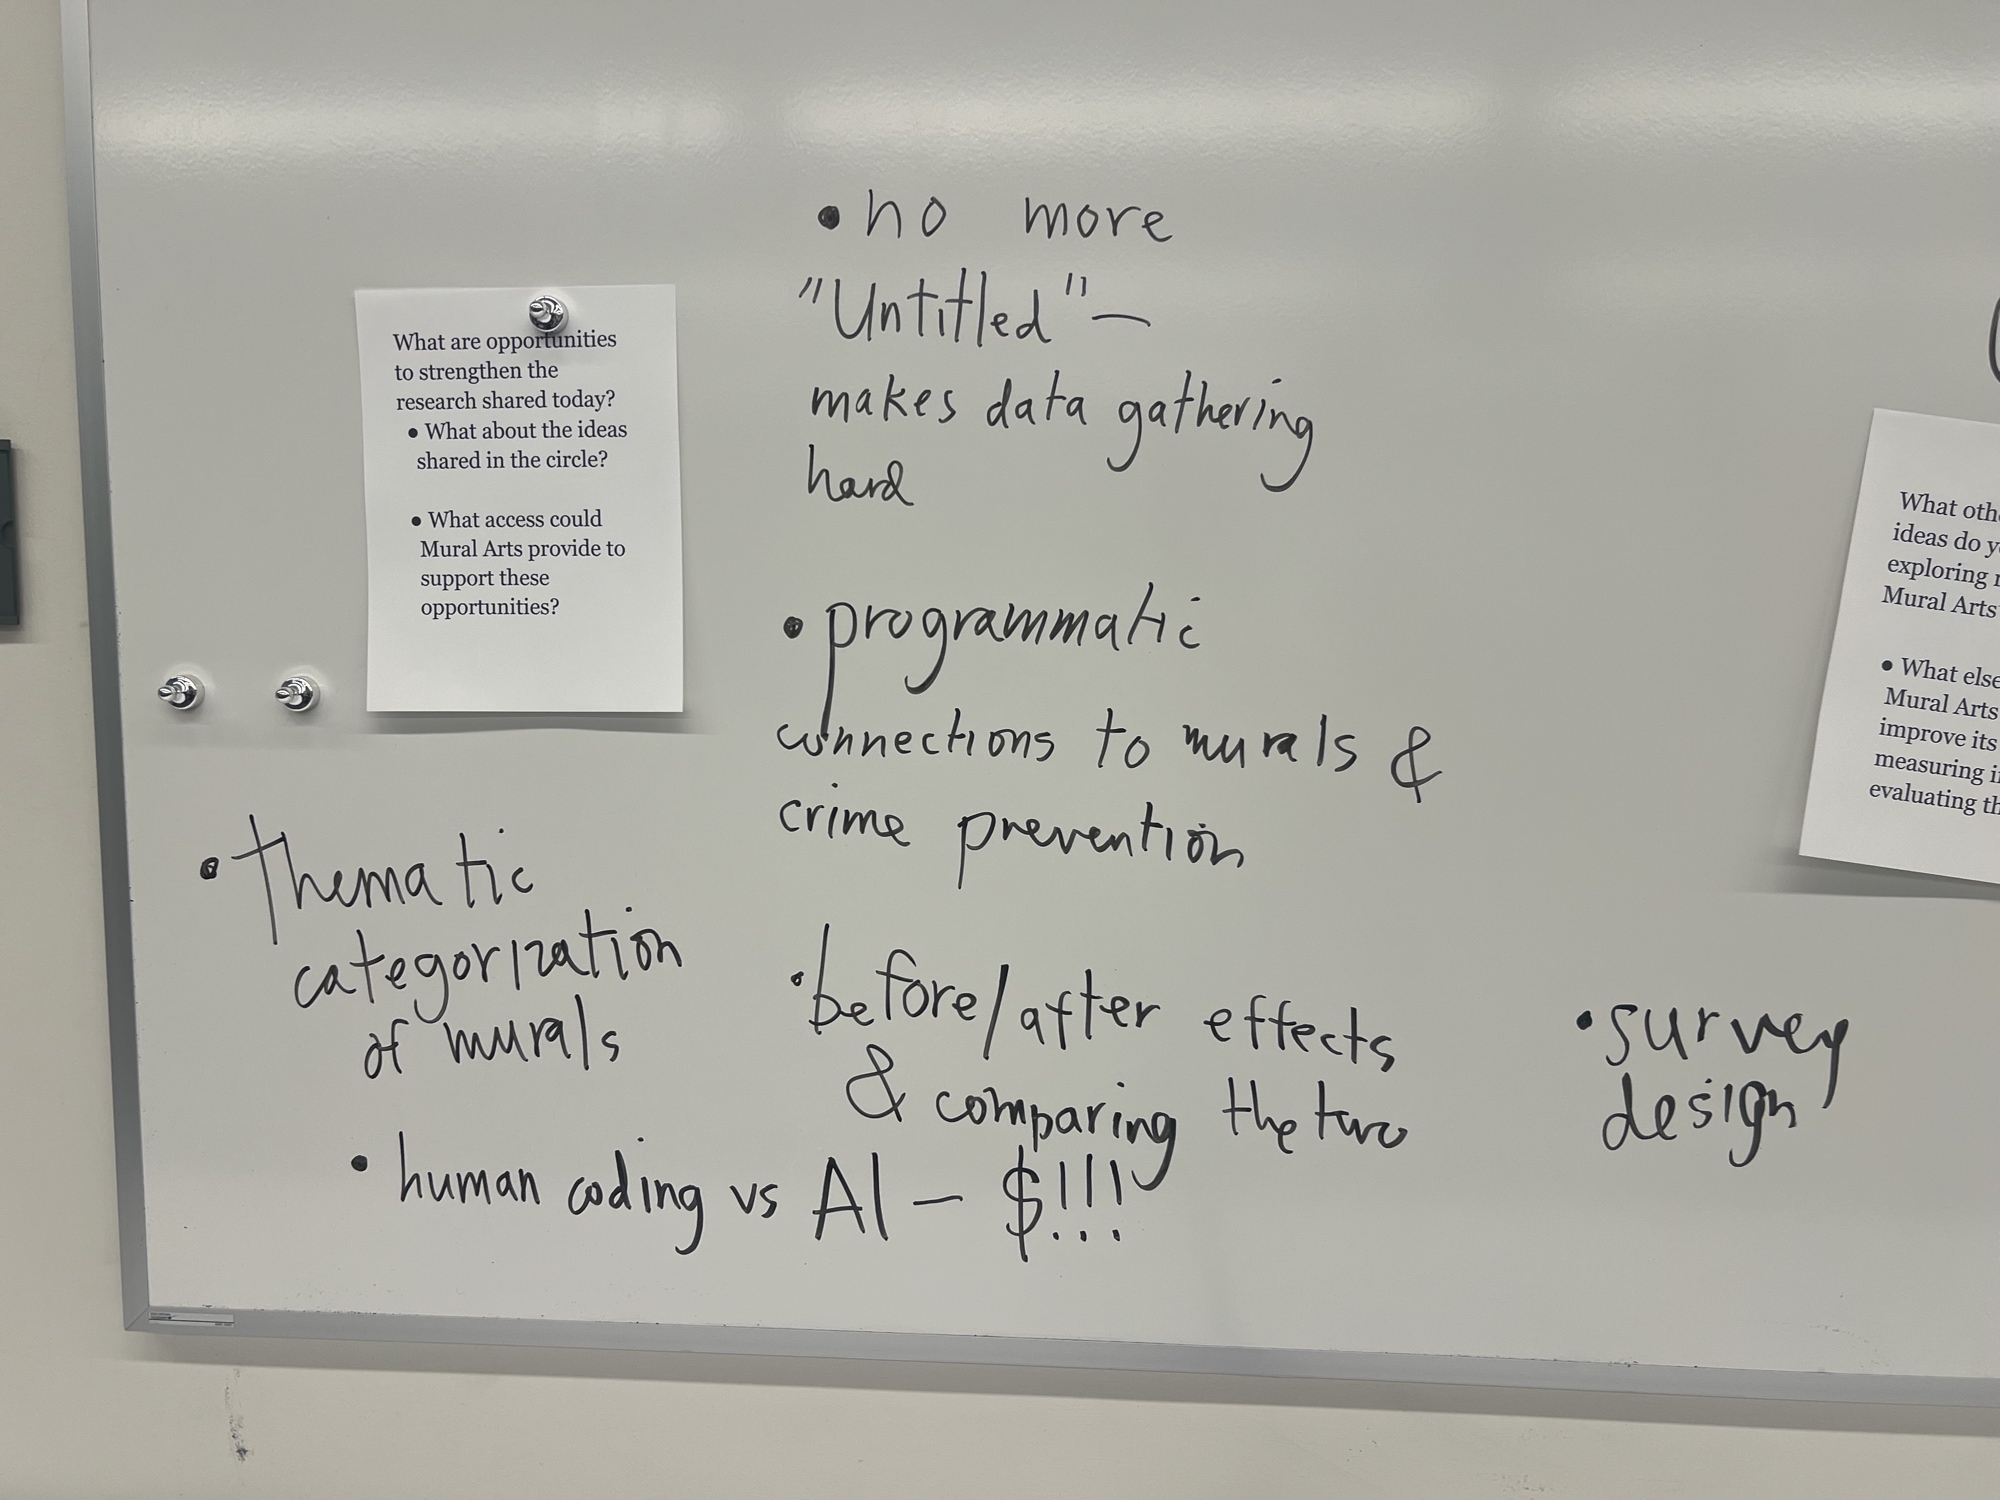 What are opportunities
to strengthen the
research shared today?
• What about the ideas
shared in the circle?
• What access could
Mural Arts provide to
support these
opportunities?
• no more
"Untitled" —
makes data gathering
hard
• programmatic
connections to murals &
crime prevention
• Thematic
categorization
of murals
• before/after effects
& comparing the two
• human coding vs AI — $!!!
• survey
design
What
ideas do
exploring
Mural Arts
• What else
Mural Arts
improve its
measuring
evaluating